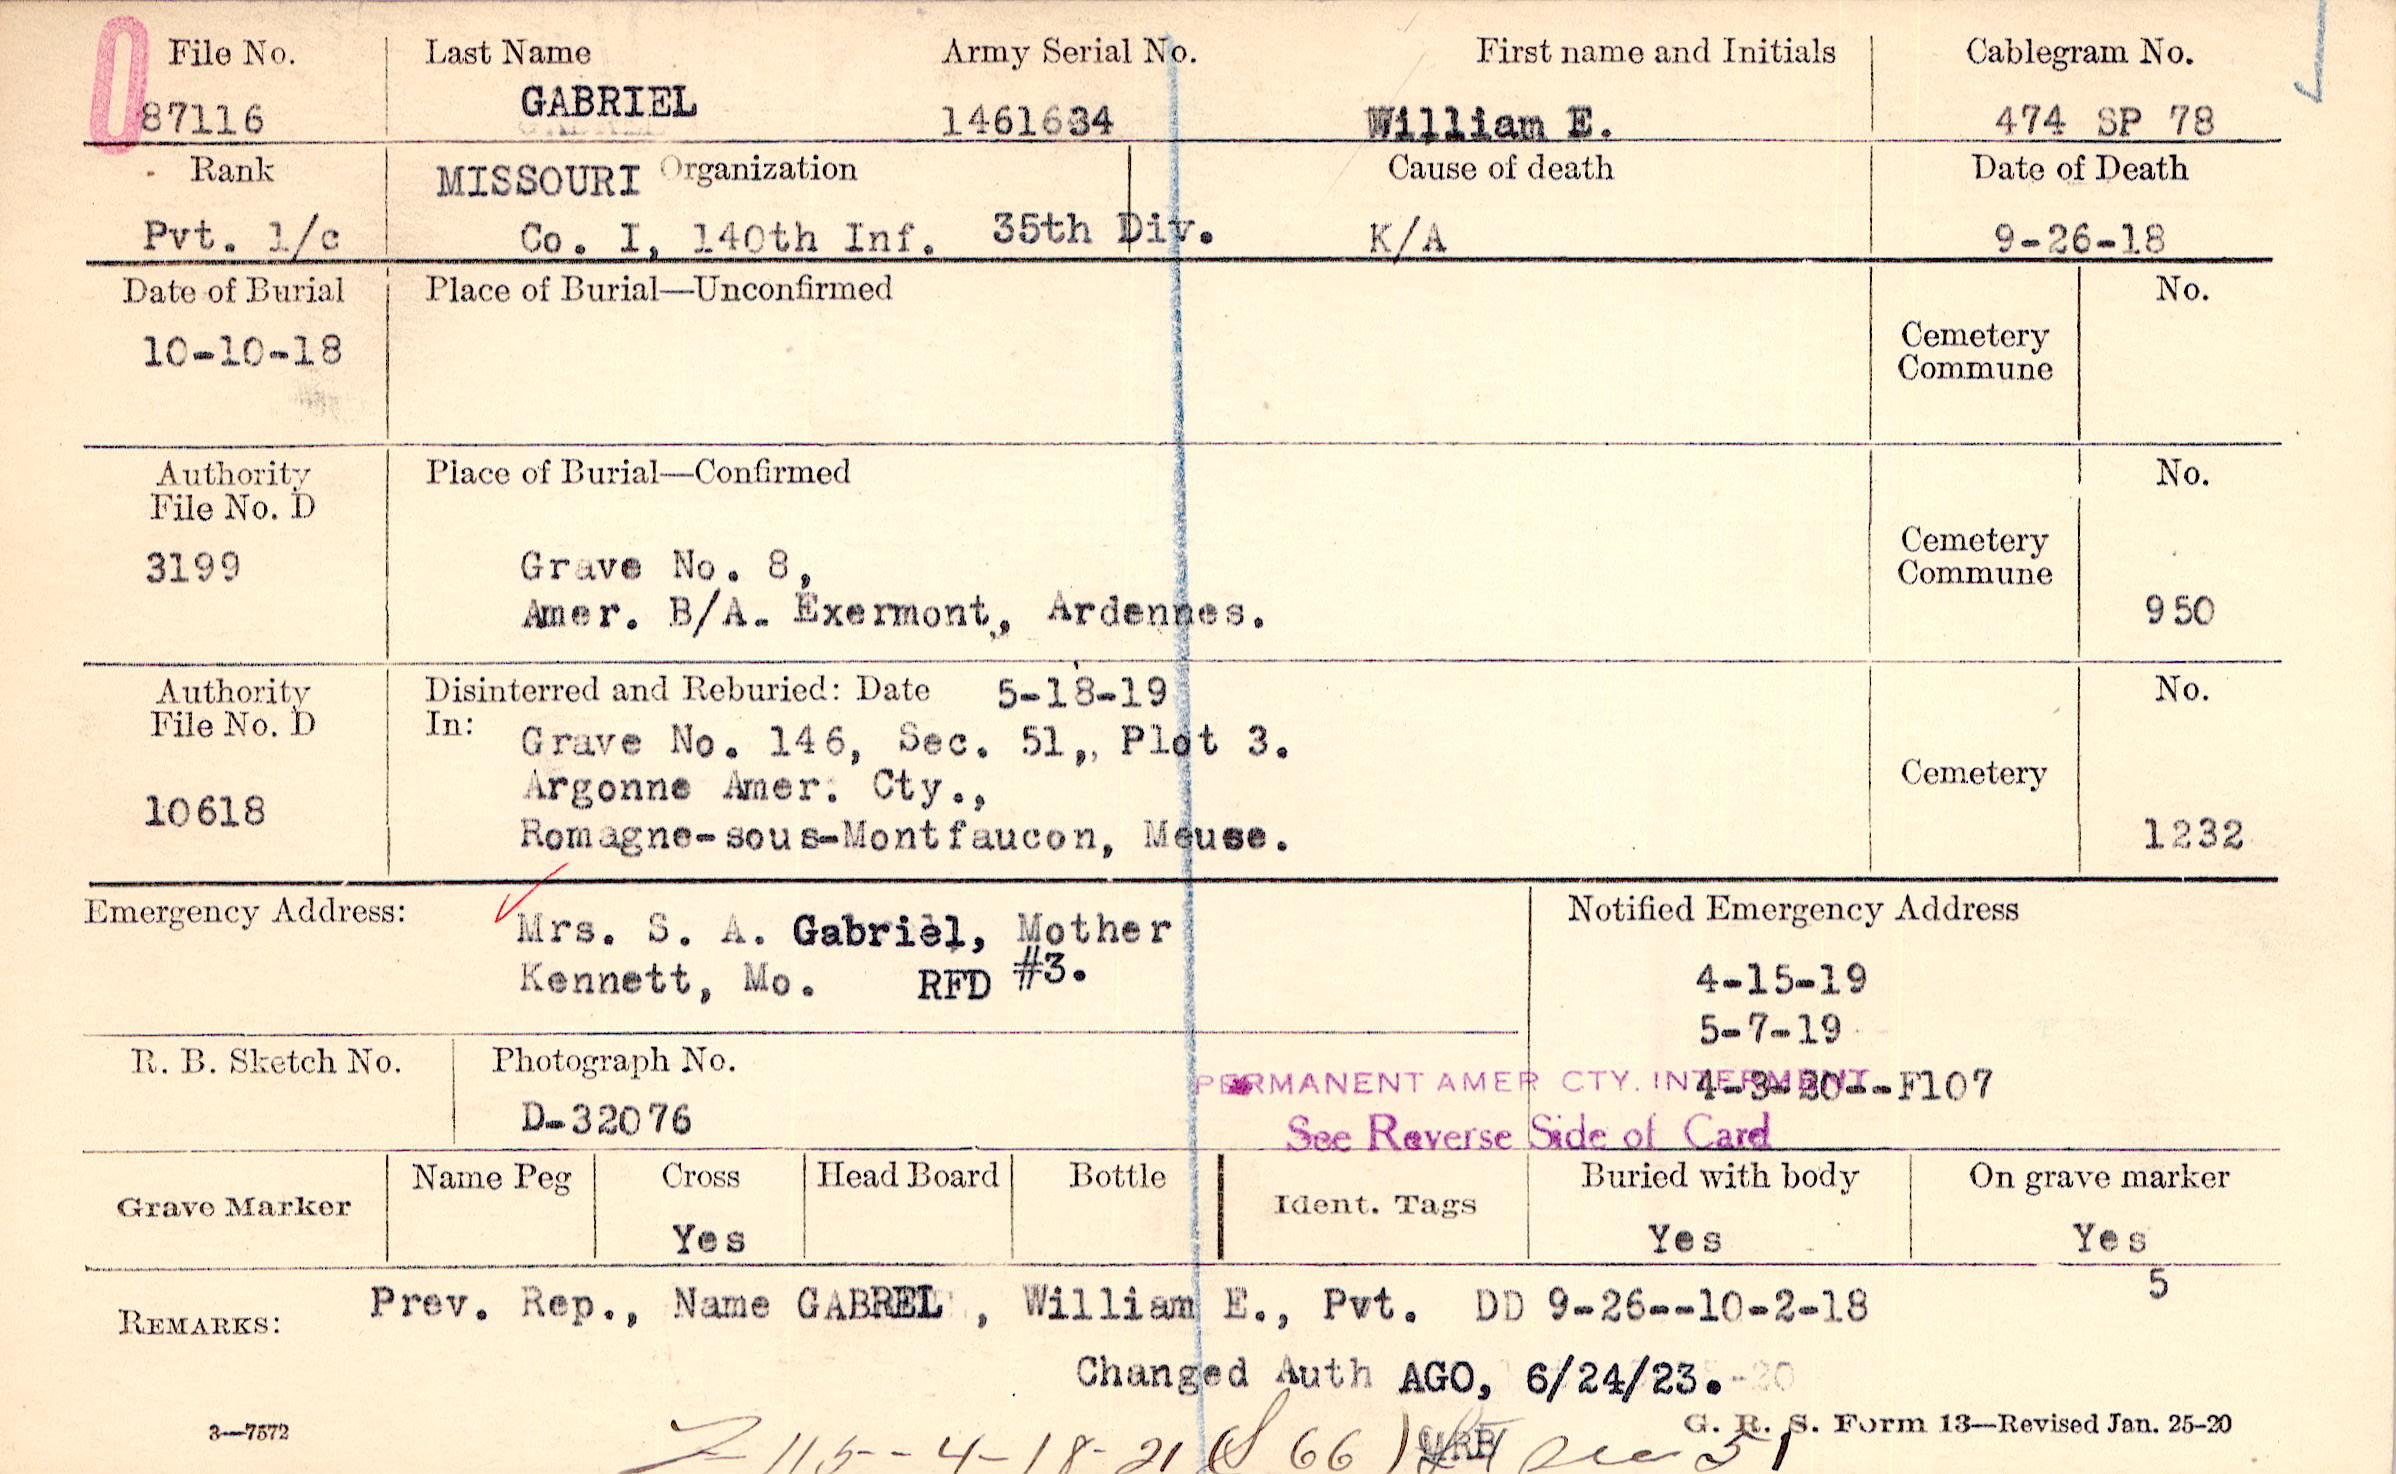 File No. Last Name Army Serial No. First name and Initials Cablegram No.
87116 GABRIEL 1461634 William E. 474 SP 78
Rank MISSOURI Organization Cause of death Date of Death
Pvt. 1/c Co. I, 140th Inf. 35th Div. K/A 9-26-18
Date of Burial Place of Burial—Unconfirmed No.
10-10-18
Cemetery
Commune
Authority Place of Burial—Confirmed No.
File No. D
3199 Grave No. 8,
Amer. B/A. Exermont, Ardennes.
Cemetery
Commune
950
Authority Disinterred and Reburied: Date 5-18-19 No.
File No. D In: Grave No. 146, Sec. 51, Plot 3.
10618 Argonne Amer. Cty., Cemetery
Romagne-sous-Montfaucon, Meuse. 1232
Emergency Address: Mrs. S. A. Gabriel, Mother Notified Emergency Address
Kennett, Mo. RFD #3. 4-15-19
5-7-19
R. B. Sketch No. Photograph No. PERMANENT AMER CTY. INTERMENT 4-3-20--F107
D-32076 See Reverse Side of Card
Grave Marker Name Peg Cross Head Board Bottle Ident. Tags Buried with body On grave marker
Yes Yes Yes
5
REMARKS: Prev. Rep., Name GABREL, William E., Pvt. DD 9-26--10-2-18
Changed Auth AGO, 6/24/23.
3—7572 G. R. S. Form 13—Revised Jan. 25-20
115--4-18-21 (S 66) MRB 51